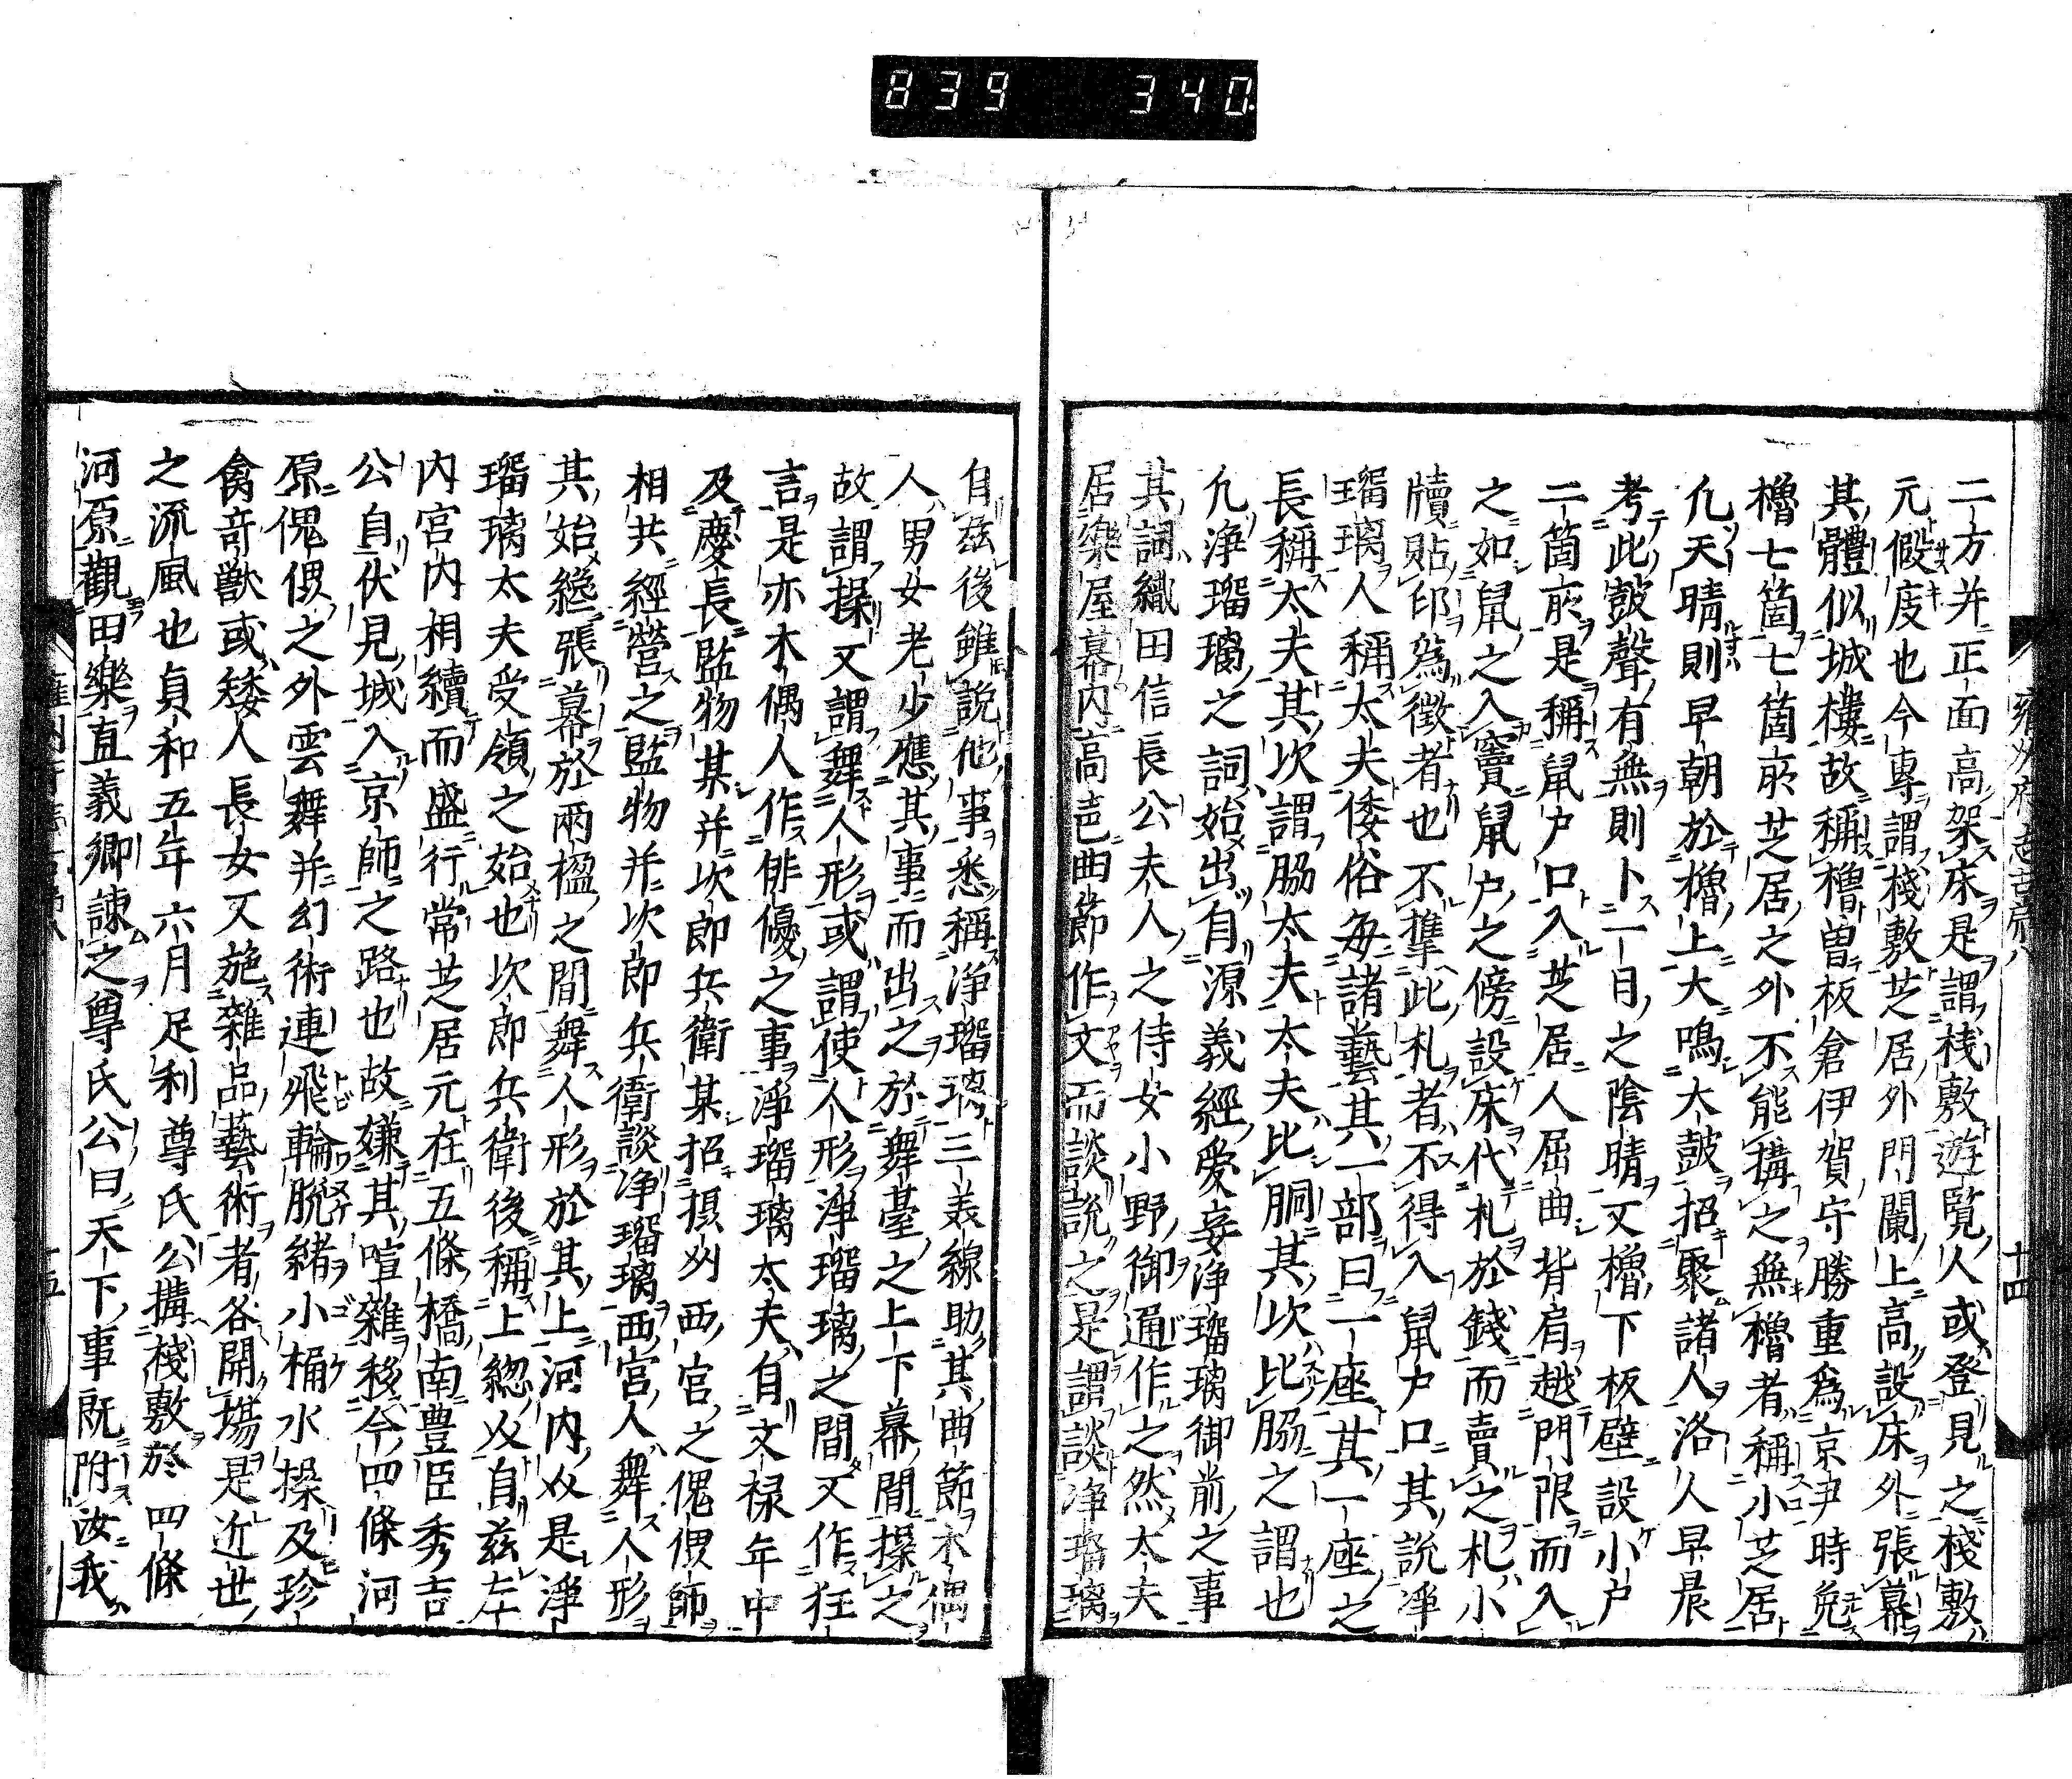 839 340
雍州府志古蹟八 十四
二方并正面高架床是謂桟敷遊覧人或登見之棧敷
元假庋也今專謂棧敷芝居外門闌上高設床外張幕
其體似城樓故稱櫓曽板倉伊賀守勝重爲京尹時免
櫓七箇七箇所芝居之外不能搆之無櫓者稱小芝居
凢天晴則早朝於櫓上大鳴大皷招聚諸人洛人早晨
考此皷聲有無則卜一日之陰晴又櫓下板壁設小戸
二箇所是稱鼠戸口入芝居人屈曲背肩越門限而入
之如鼠之入竇鼠戸之傍設床代札於錢而賣之札小
牘貼印爲徴者也不凖此札者不得入鼠戸口其說浄
瑠璃人稱太夫倭俗毎諸藝其一部曰一座其一座之
長稱太夫其次謂脇太夫太夫比胴其次比脇之謂也
凢浄瑠璃之詞始出自源義經愛妾浄瑠璃御前之事
其詞織田信長公夫人之侍女小野御通作之然太夫
居樂屋幕内高声曲節作文而談說之是謂談浄瑠璃
自兹後雖說他事悉稱浄瑠璃三美線助其曲節木偶
人男女老少應其事而出之於舞臺之上下幕間操之
故謂操又謂舞人形或謂使人形浄瑠璃之間又作狂
言是亦木偶人作俳優之事浄瑠璃太夫自文禄年中
及慶長監物某并次郎兵衛某招摂州西宮之傀儡師
相共經營之監物并次郎兵衛談浄瑠璃西宮人舞人形
其始縂張幕於兩楹之間舞人形於其上河内以是浄
瑠璃太夫受領之始也次郎兵衛後稱上総以自兹左
内宮内相續而盛行常芝居元在五條橋南豊臣秀吉
公自伏見城入京師之路也故嫌其喧雜移今四條河
原傀儡之外雲舞并幻術連飛輪脱緒小桶水操及珍
禽竒獣或矮人長女又施雜品藝術者各開場是近世
之流風也貞和五年六月足利尊氏公搆棧敷於四條
河原觀田樂直義卿諌之尊氏公曰天下事既附汝我
十五